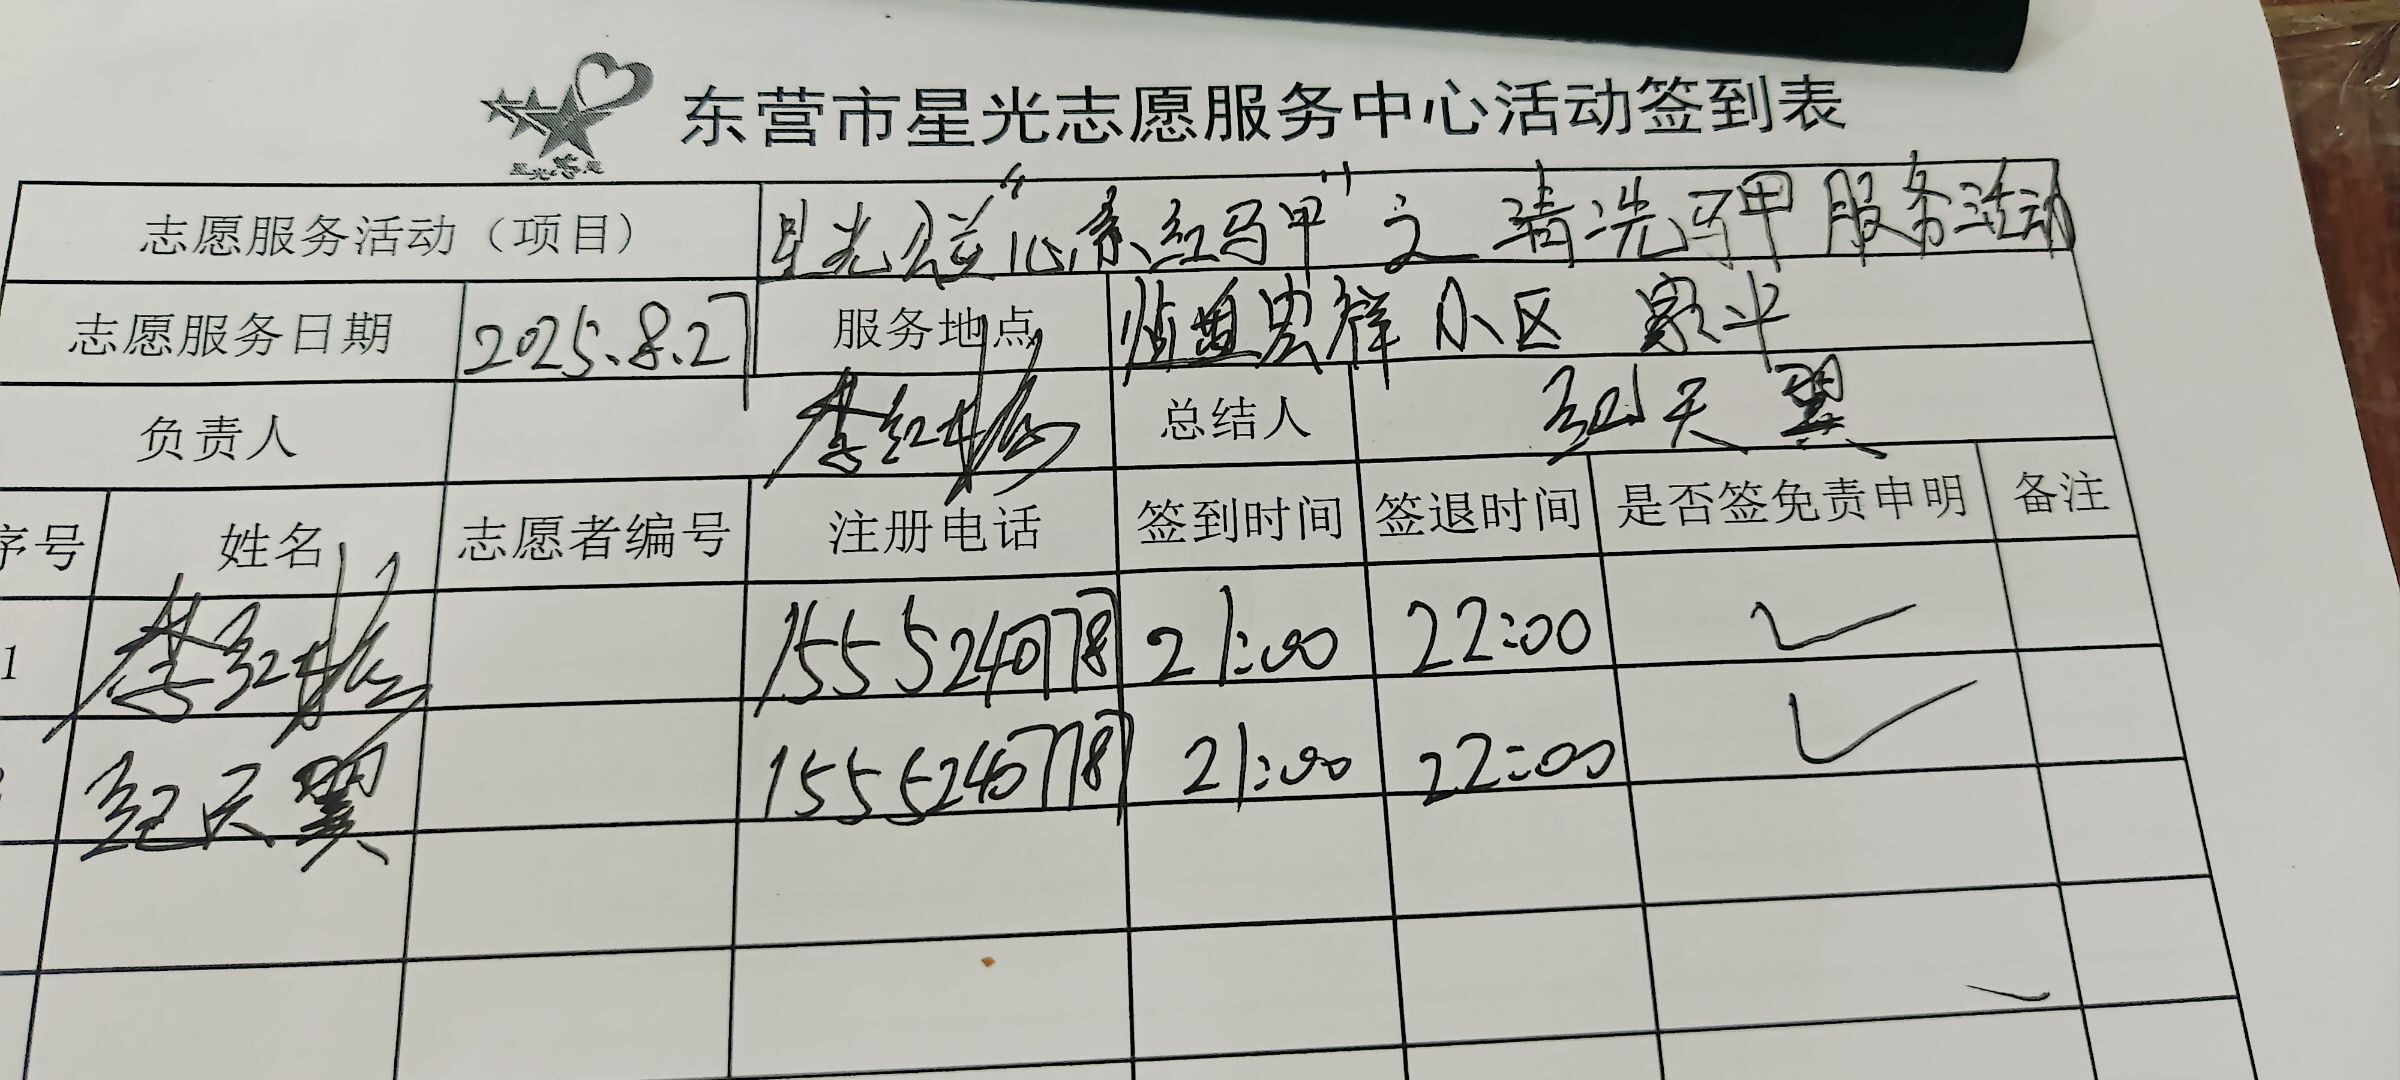 东营市星光志愿服务中心活动签到表
志愿服务活动（项目） 星光公益“心系红马甲”之清洗马甲服务活动
志愿服务日期 2025.8.27 服务地点 小区
负责人 李红梅 总结人 纪天翼
序号 姓名 志愿者编号 注册电话 签到时间 签退时间 是否签免责申明 备注
1 李红梅 15552407787 21:00 22:00 ✓
纪天翼 15552407787 21:00 22:00 ✓